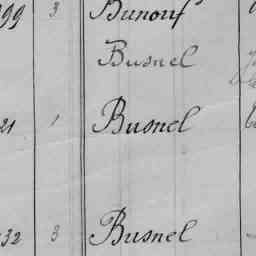 99 3 Bunouf
Busnel
21 1 Busnel
32 3 Busnel